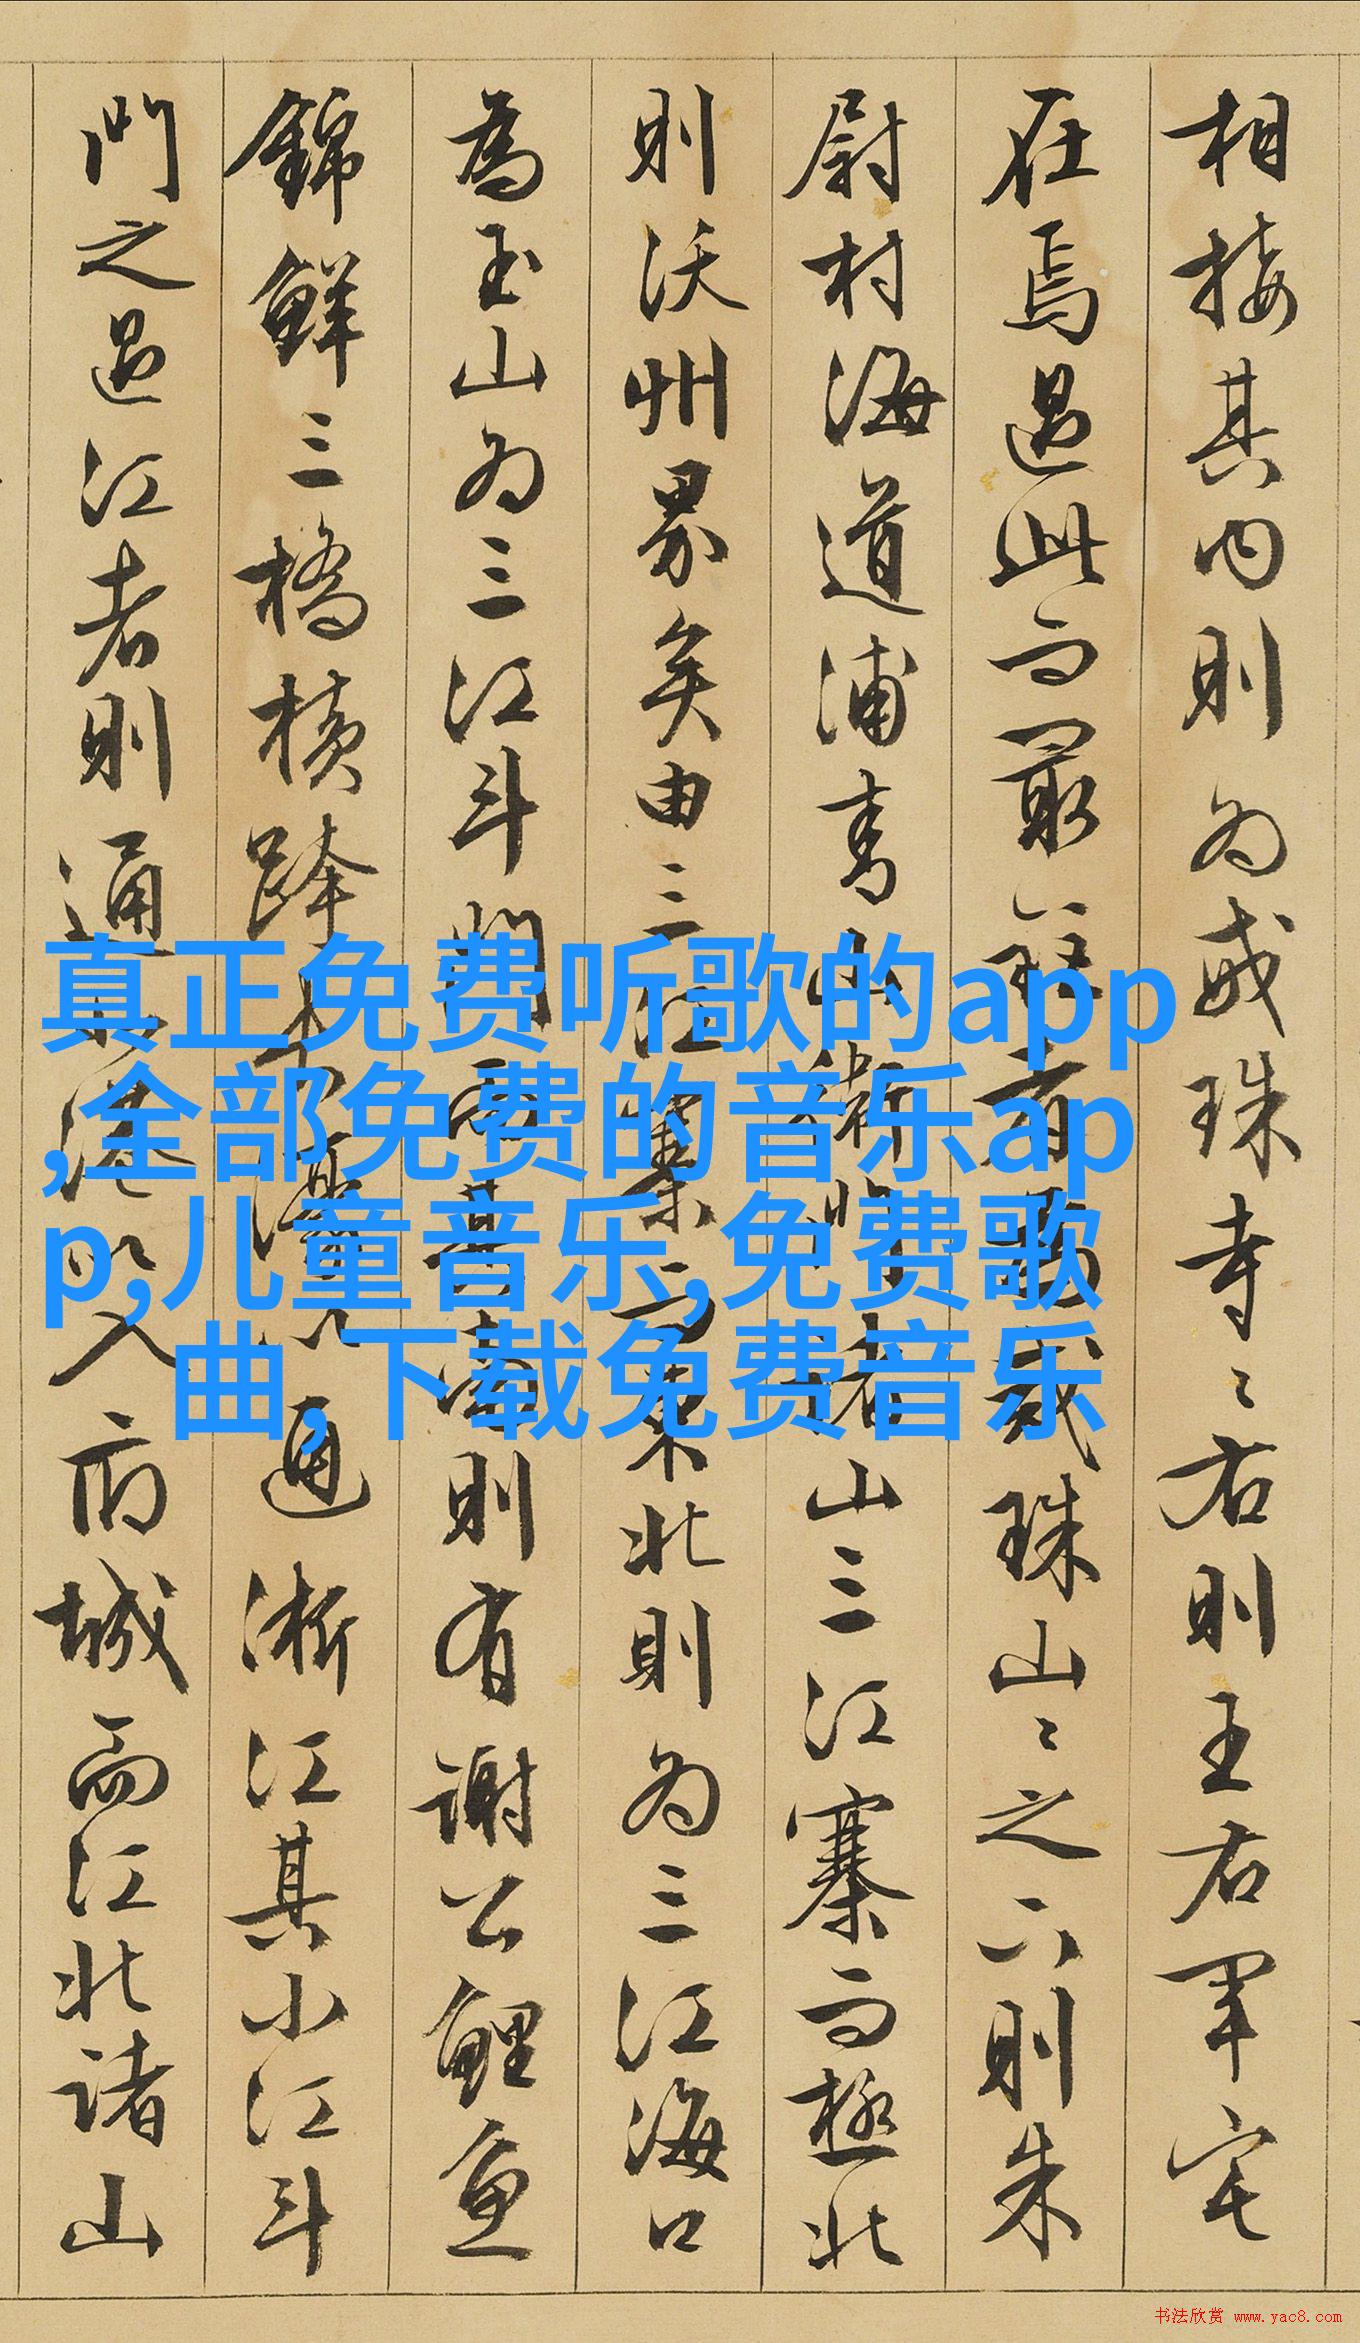 相接其内則为戒珠寺〻右則王右軍宅
在焉過此而最
珠山〻之六則朱
尉村海道浦青山
山三江寨而極北
則沃州界矣由三江
東北則为三江海口
為玉山为三江斗門
則有謝公鯉魚
錦鮮三橋横跨
通浙江其小江斗
門之過江者則通
入府城而江北諸山
真正免费听歌的app
,全部免费的音乐ap
p,儿童音乐,免费歌
曲,下载免费音乐
书法欣赏 www.yac8.com